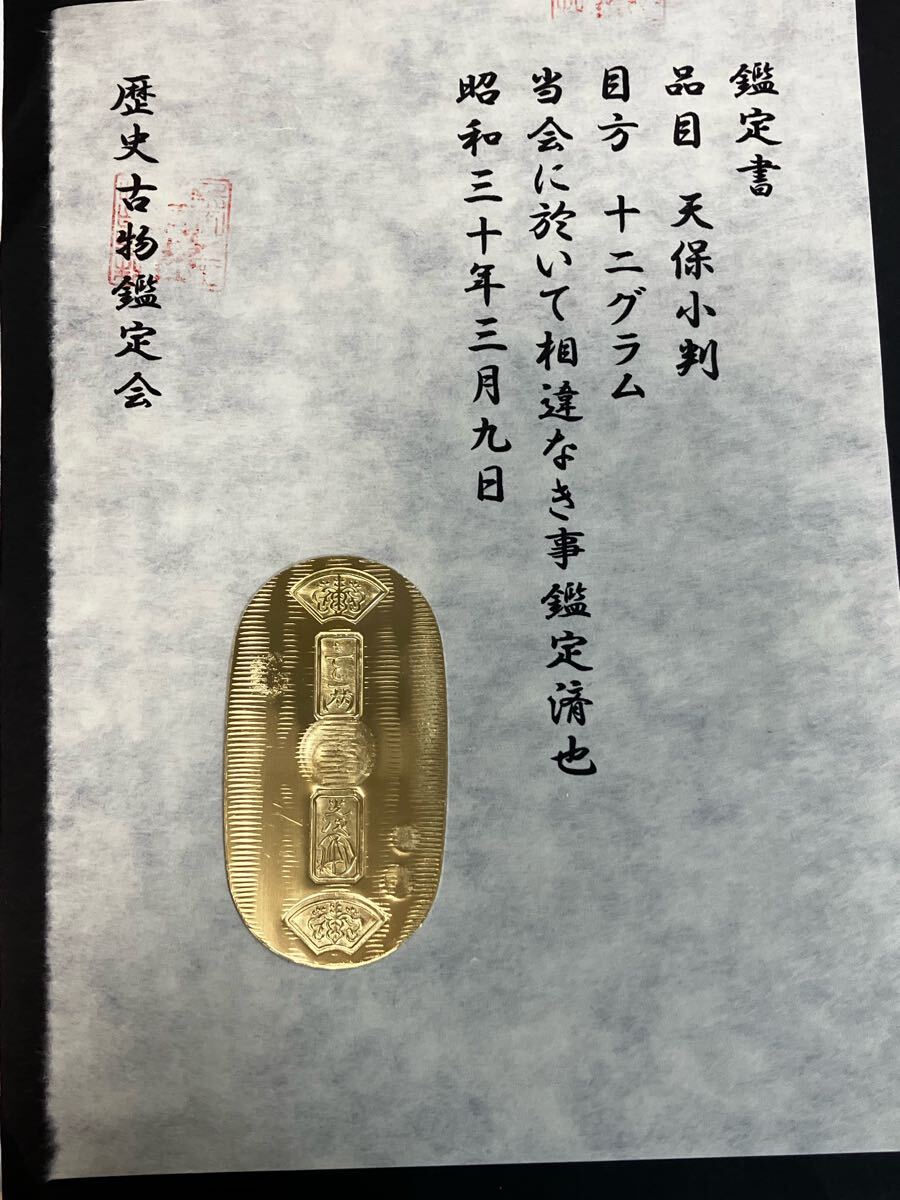 鑑定書
品目 天保小判
目方 十二グラム
当会に於いて相違なき事鑑定済也
昭和三十年三月九日
歴史古物鑑定会